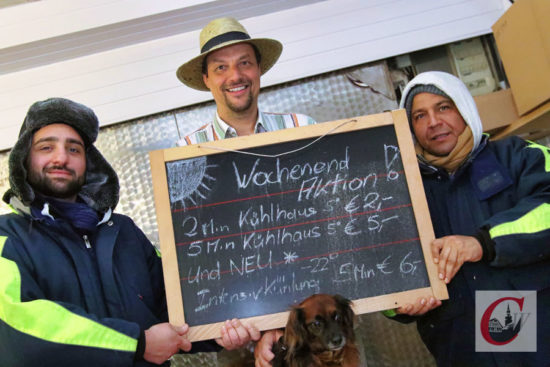 Wochenend
Aktion!
2 Min Kühlhaus 5° € 2,-
5 Min Kühlhaus 5° € 5,-
Und NEU *
-22°
Intensivkühlung 1,5 Min € 6,-
CW